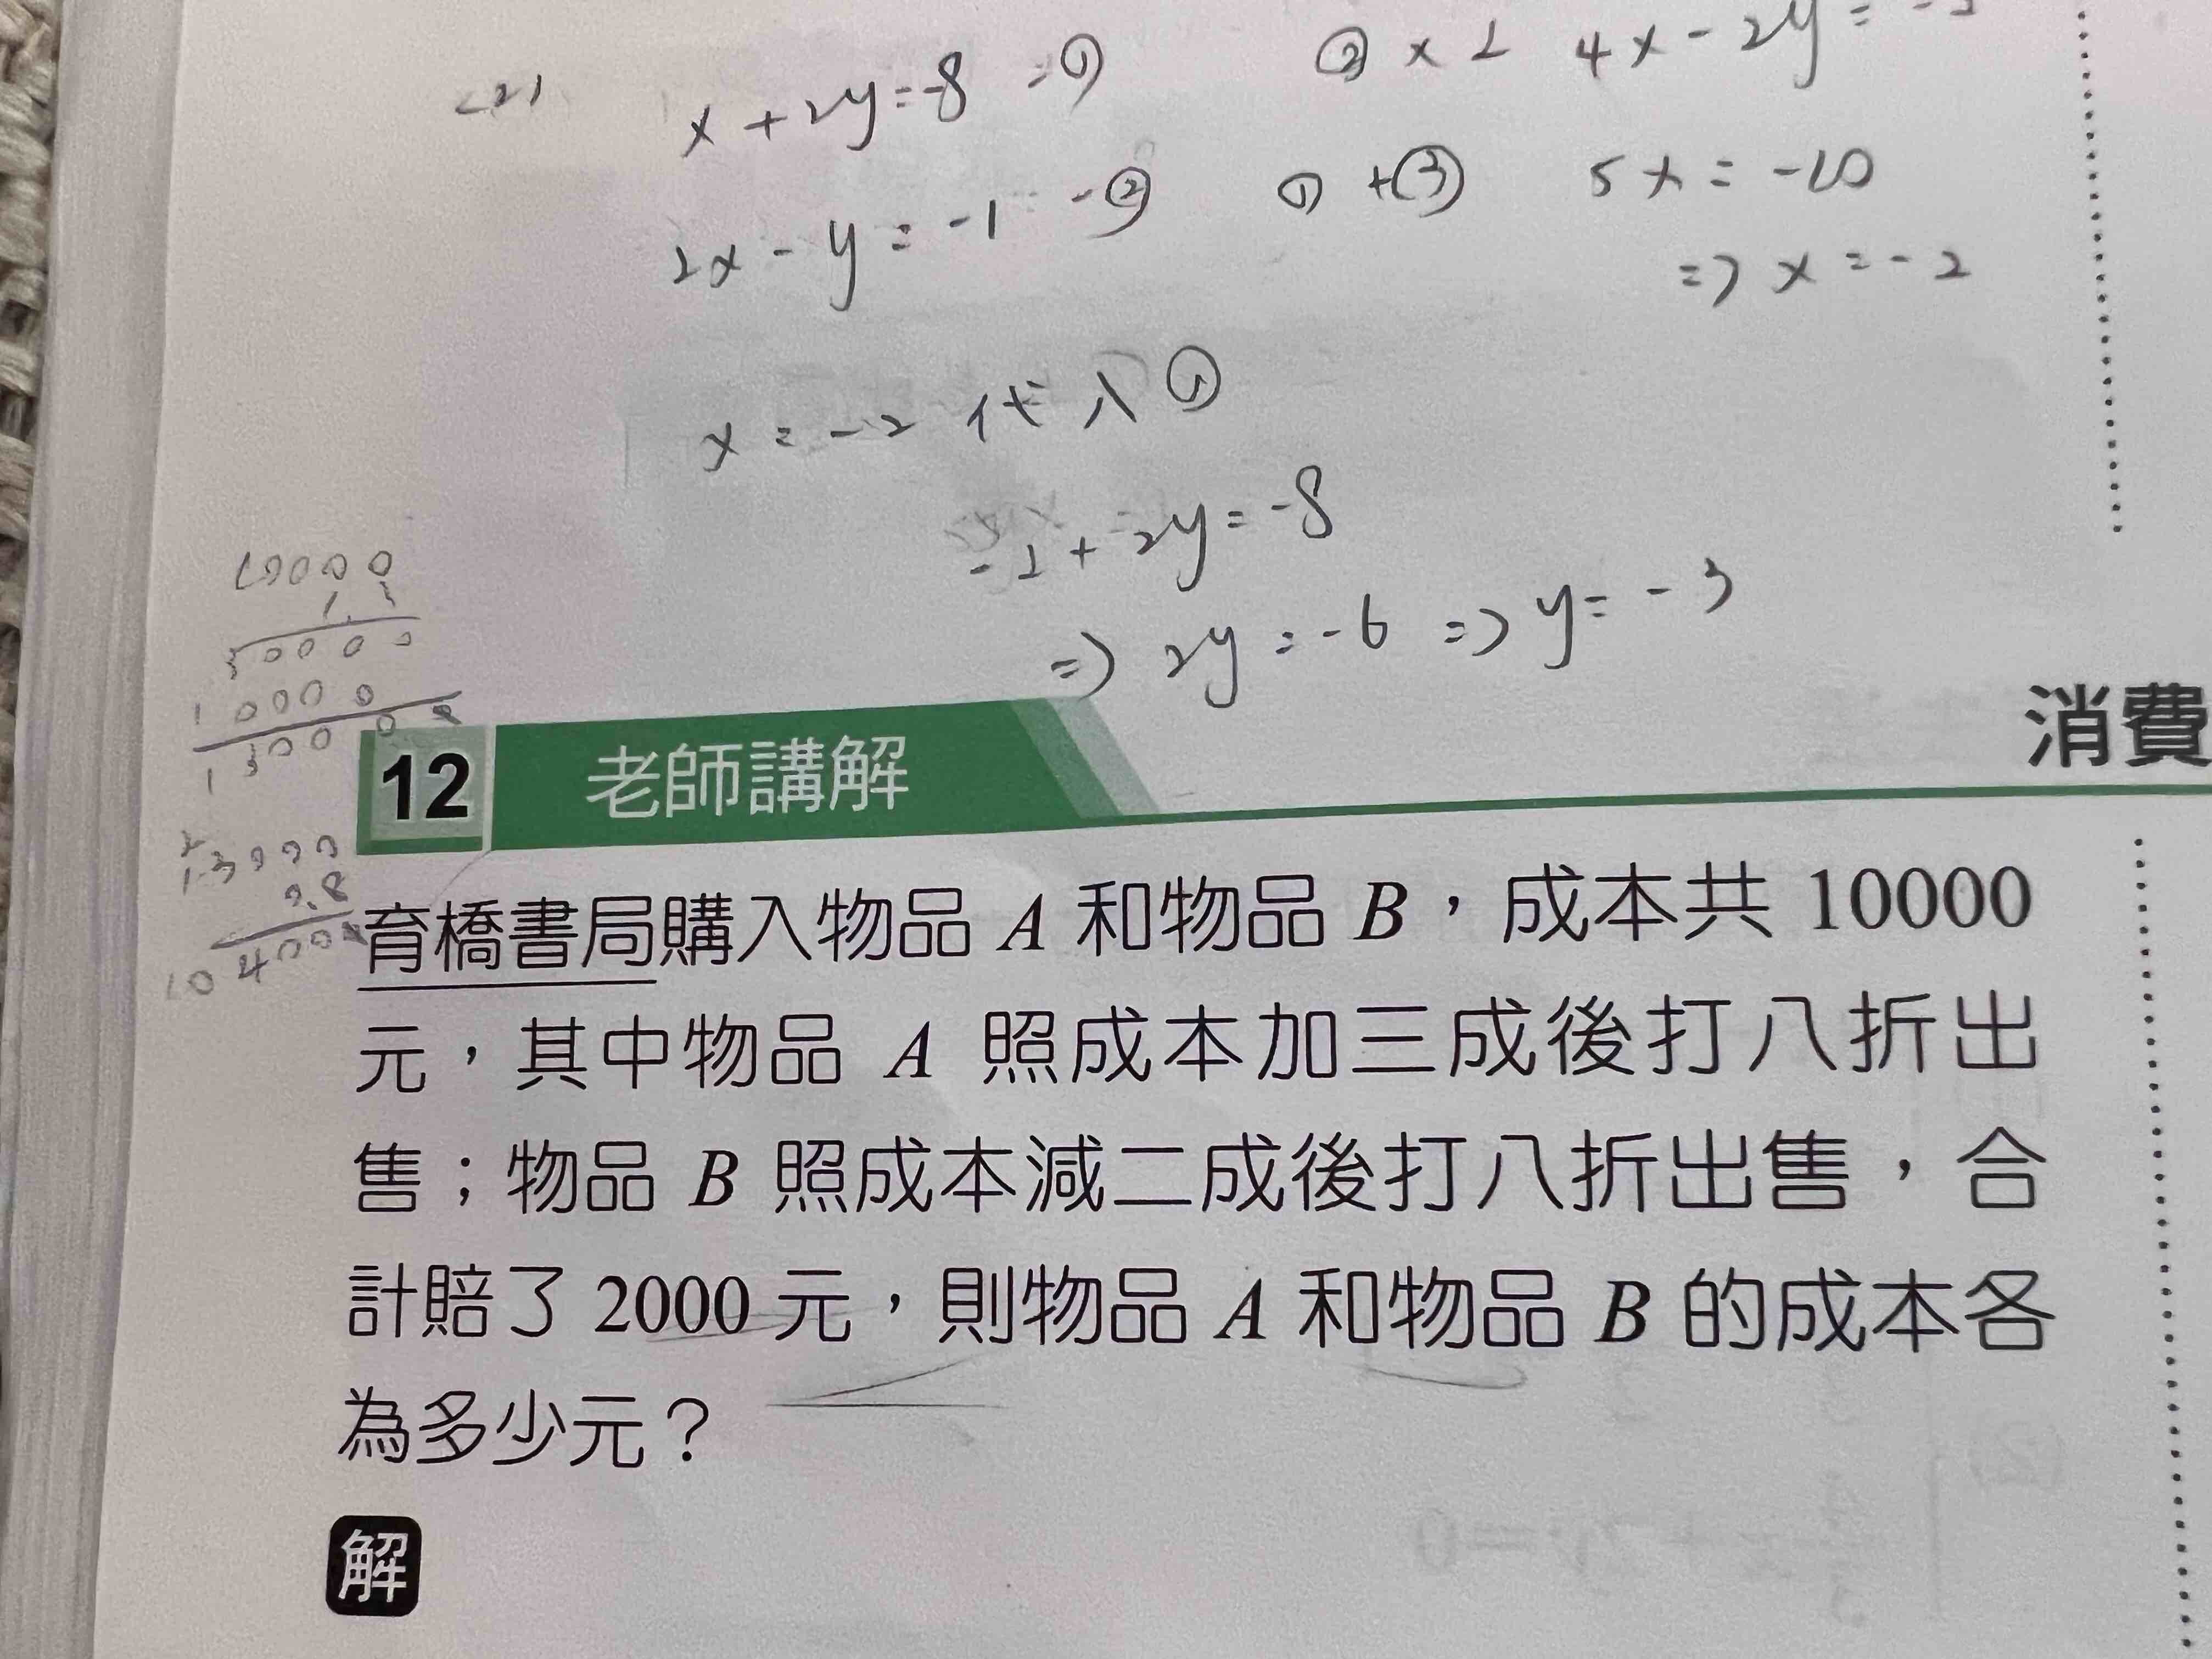 (2) x + 2y = -8 -① ② × 2 4x - 2y =
2x - y = -1 -② ① + ③ 5x = -10
=> x = -2
x = -2 代入①
-2 + 2y = -8
=> 2y = -6 => y = -3
10000
1.3
30000
10000
13000
12 老師講解
消費
13000
0.8
10400
育橋書局購入物品 A 和物品 B，成本共 10000
元，其中物品 A 照成本加三成後打八折出
售；物品 B 照成本減二成後打八折出售，合
計賠了 2000 元，則物品 A 和物品 B 的成本各
為多少元？
解